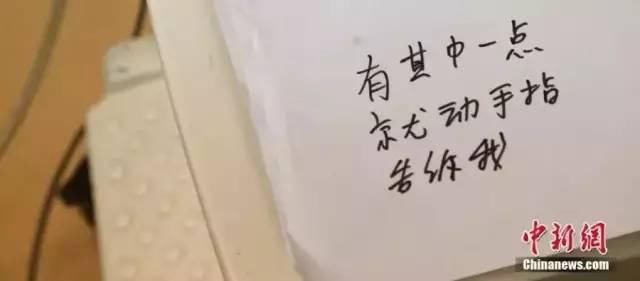 有其中一点
就动手指
告诉我
中新網
Chinanews.com